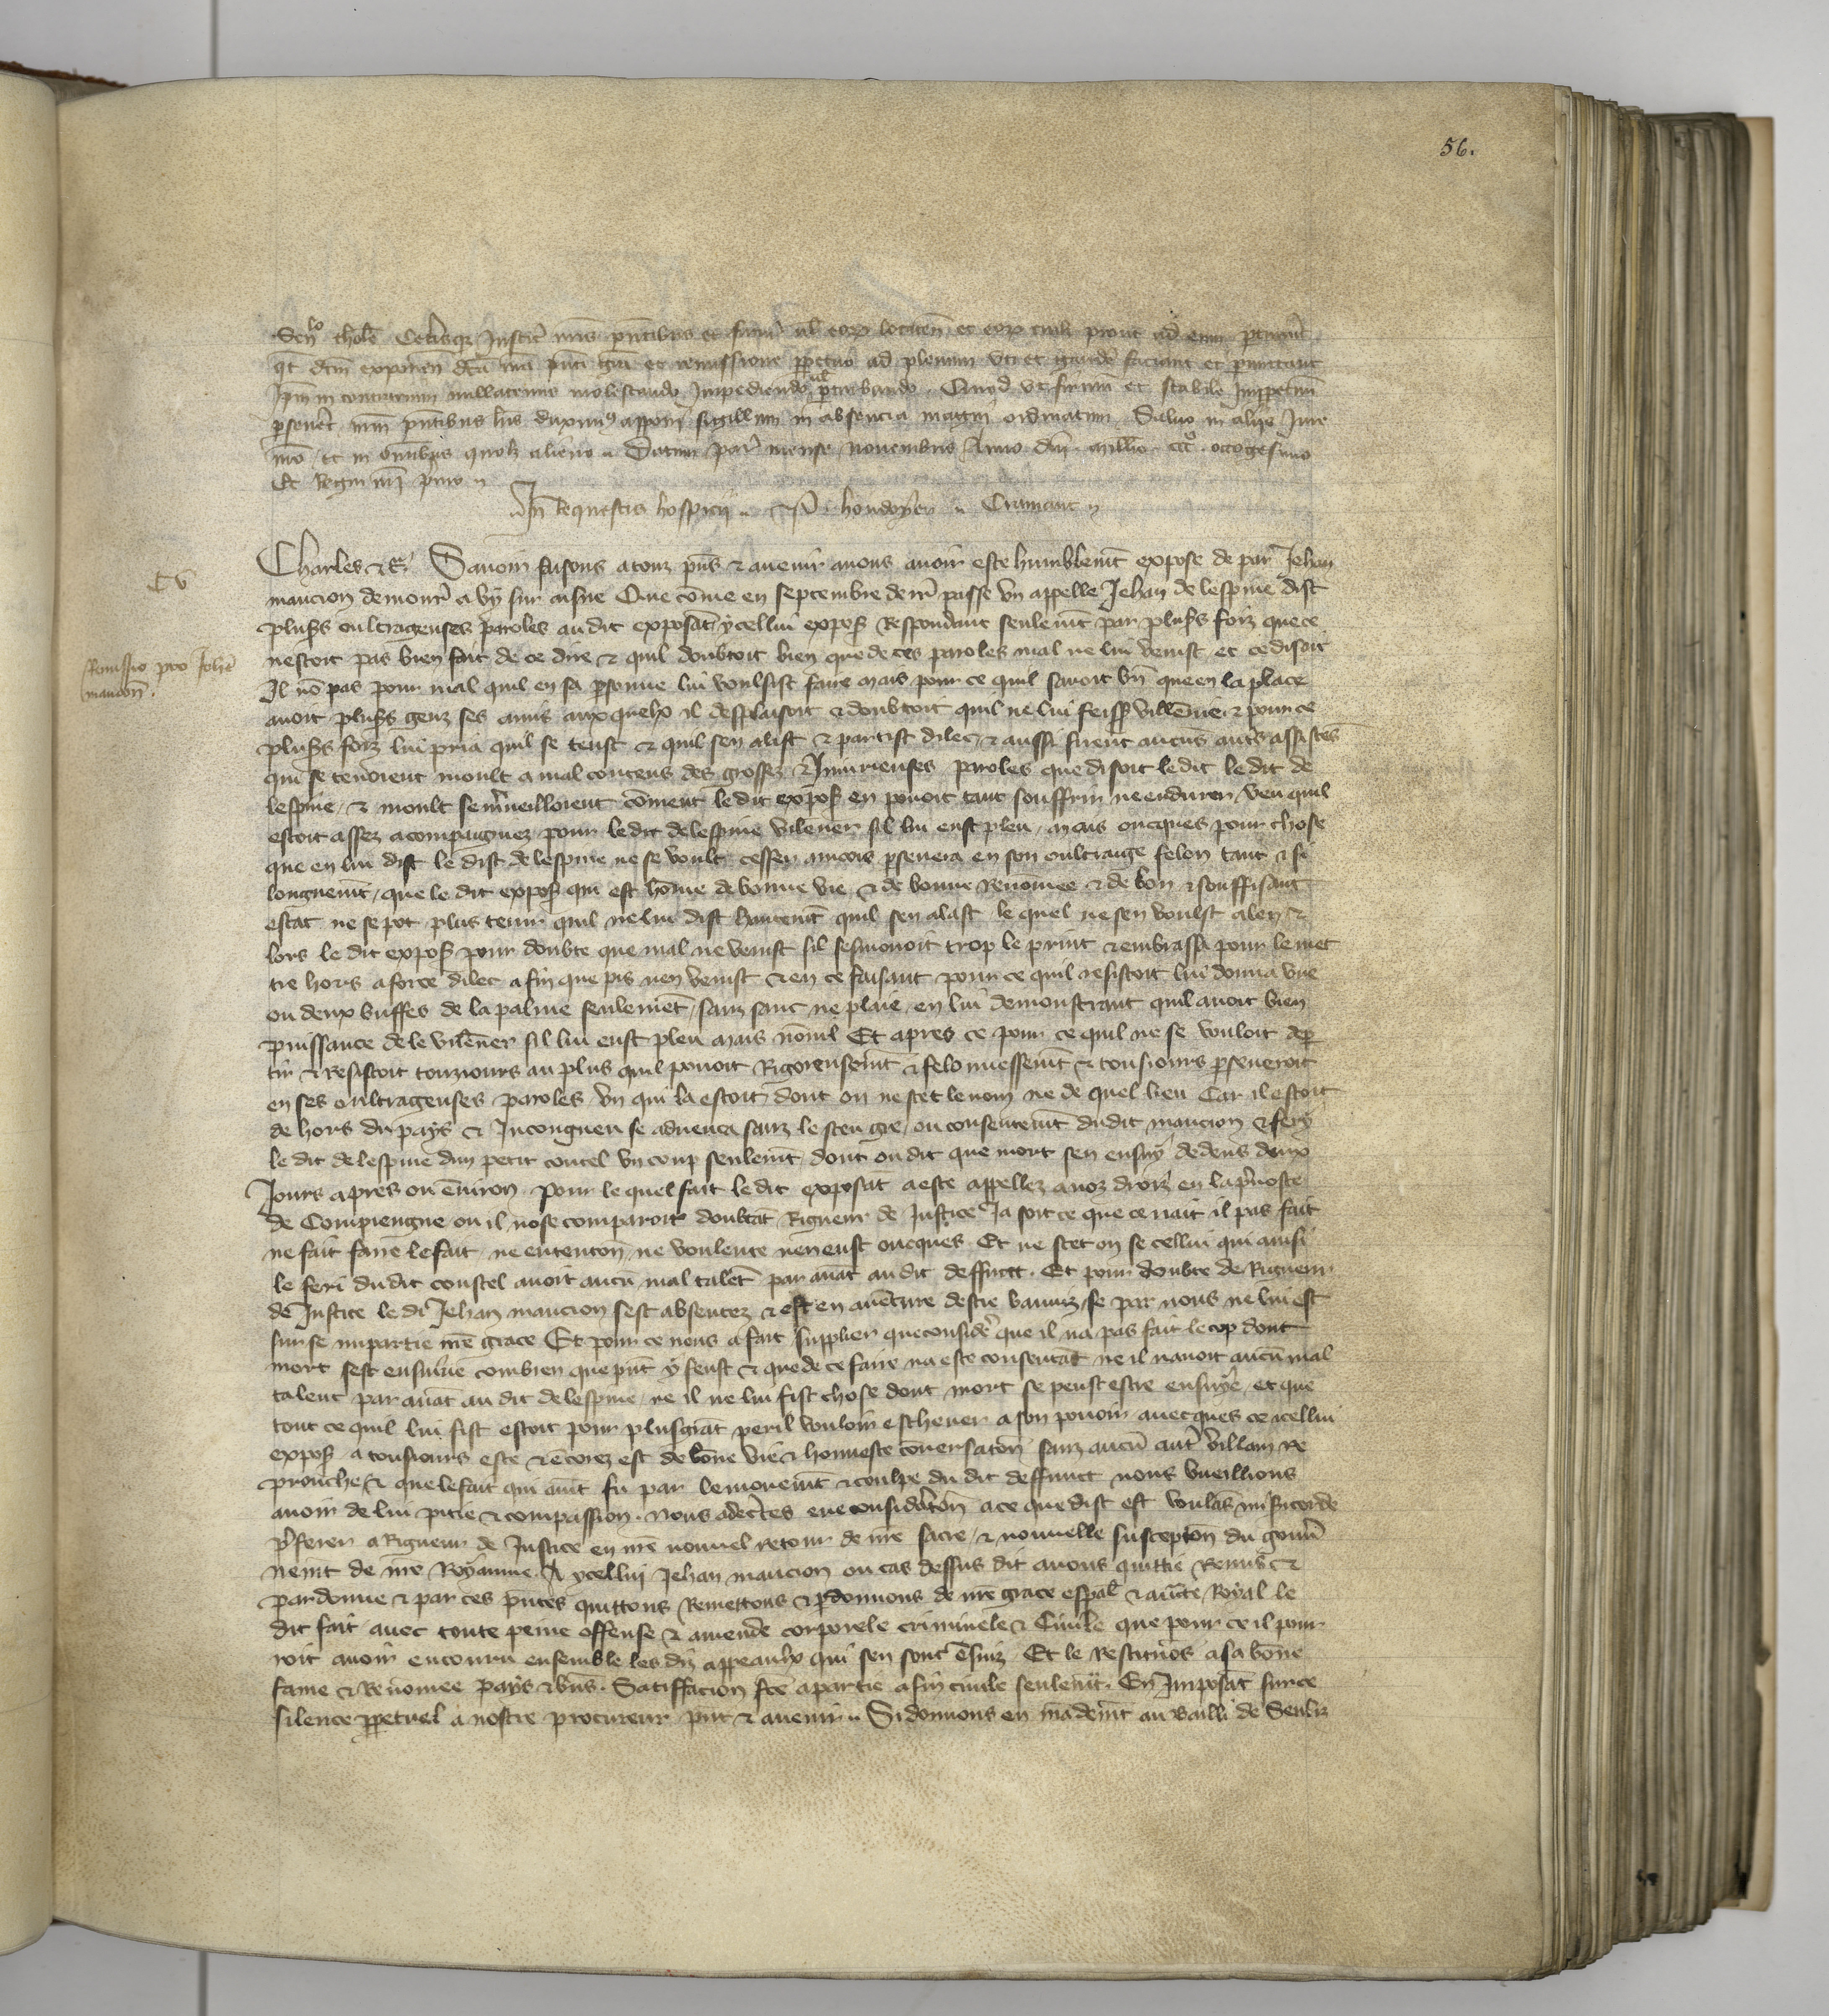 56.
Senlo thole Ceterisque Justic nris pntibus et futur vel eorum locaten et eorum cuili prout ad eum ptinuit
qt dcm exponen dca nra pnti gra et remissione perpetuo ad plenum uti et gaude faciant et pmittant
Ipm in contrarium nullatenus molestando Impediendo vel pturbando. Quod ut firmum et stabile Imppetuum
pseveret nrm pntibus lris duximus apponi sigillum in absencia magni ordinatum Salvo in aliis Jure
nro et in omibus quolz alieno. Datum Par mense novembris Anno dni millio CCCo octogesimo
Et Regni nri primo
In Requestis hospicii. P. houdoyer. Cramant
CV
Charles &c. Savoir faisons a touz pns & avenir a nous avoir este humblemt expose de par Jehan
maucion demour a Vy sur aisne Que come en septembre derr passe un appelle Jehan de lespine dist
plus oultrageuses paroles au dit exposat ycellui expos Respondant seulemt par plus foiz que ce
Remissio pro Johe
maucon.
nestoit pas bien fait de ce dire & quil doubtoit bien que de ces paroles mal ne lui venist et ce disoit
Il no pas pour mal quil en sa psonne lui voulsist faire mais pour ce quil savoit bn que en la place
avoit plus genz ses amis aux quelx il desplaisoit & doubtoit quil ne lui feiss villenie & pour ce
plus foiz lui pria quil se teust & quil sen alist & partist dilec & aussi furent aucuns autres assistes
qui se tenoient moult a mal contens des grosses & Injurieuses paroles que disoit ledit le dit de
lespine & moult se mveilloient coment le dit expos en povoit tant souffrir ne endurer veu quil
estoit assez acompaignez pour le dit de lespine vilener sil lui eust pleu mais oncques pour chose
que en lui dist le dist de lespine ne se voult cesser aincois psevera en son oultraige felon tant & si
longuemt que le dit expos qui est home de bonne vie & de bonne Renomee & de bon & souffisant
estat ne se pot plus tenir quil ne lui dist hautemt quil sen alast le quel ne sen voulst aler &
lors le dit expos pour doubte que mal ne venist sil sesmouoit trop le print & embrassa pour le met
tre hors a force dilec a fin que pis nen venist & en ce faisant pour ce quil resistoit lui donna une
ou deux buffes de la palme seulemet sanz sanc ne plaie en lui demonstrant quil avoit bien
puissance de le vilener sil lui eust pleu mais nonil Et apres ce pour ce quil ne se vouloit dep
tir & Resistoit touziours au plus quil povoit Rigoreusemt & felonnessemt & tousiours pseveroit
en ses oultrageuses paroles un qui la estoit dont on ne scet le nom ne de quel lieu Car il estoit
de hors du pays & Incongneu se advenca sanz le sceu gre ou consentemt dudit maucion & fery
le dit de lespine dun petit coutel un coup seulemt dont on dit que mort sen ensuy dedens deux
Jours apres ou environ Pour le quel fait le dit exposat a este appellez a noz droiz en la prevoste
de Compiengne ou il nose comparoir doubtat Rigueur de Justice Ja soit ce que ce nait il pas fait
ne fait faire le fait ne ententon ne voulente nen eust oncques Et ne scet on se cellui qui ainsi
le feri dudit coustel avoit aucu mal talet par avat au dit deffunct. Et pour doubte de Rigueur
de Justice le di Jehan maucion sest absentez & est en aventure destre banniz se par nous ne lui est
sur se impartie nre grace Et pour ce nous a fait supplier que considere que il na pas fait le cop dont
mort sest ensuivie combien que pnt y feust & que de ce faire na este consentat ne il navoit aucun mal
talent par avat au dit de lespine ne il ne lui fist chose dont mort se peust estre ensuye et que
tout ce quil lui fist estoit pour plus grat peril vouloir eschever a son povoir avecques ce icellui
expos a tousiours este & encorez est de bone vie & honneste conversaton sanz aucu aut villain re
prouche & que le fait qui avit fu par le mouvemt & coulpe du dit deffunct nous vueillions
avoir de lui pitie & compassion. Nous adecertes eue consideraton a ce que dist est voulas misericorde
pferer a Rigueur de Justice en nre nouvel retour de nre sacre & nouvelle suscepton du gouver
nemt de nre Royaume. A ycellui Jehan maucion ou cas dessus dit avons quittie Remis &
pardonne & par ces pntes quittons Remettons & pdonnons de nre grace espal & aucte Royal le
dit fait avec toute peine offense & amende corporele criminele & Civile que pour ce il pour
roit avoir encouru ensemble les diz appeaulx qui sen sont ensuiz Et le Restituos a sa bone
fame & Renomee pays & bns. Satiffacion fce a partie a fin civile seulemt. En Imposat sur ce
silence ppetuel a nostre procureur pnt & avenir. Si donnons en mandemt au Bailli de Senliz